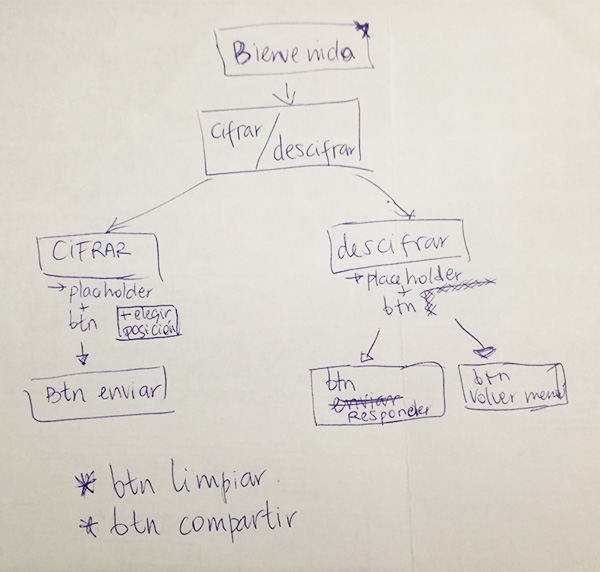 Bienvenida
cifrar/
descifrar
CIFRAR
→ placholder
+
btn
+ elegir
posición
Btn enviar
descifrar
→ placeholder
+
btn
btn
enviar
Responder
btn
Volver menú
* btn limpiar
* btn compartir